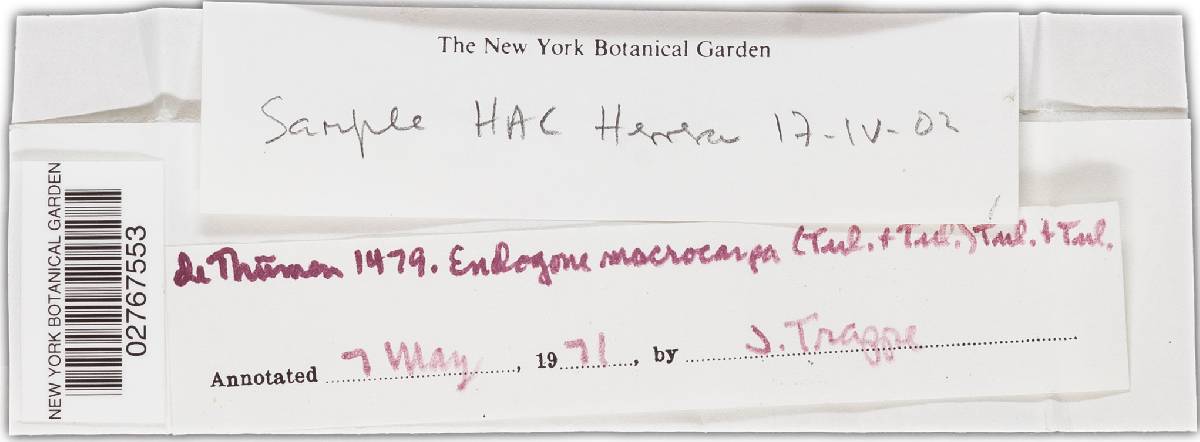 The New York Botanical Garden
Sample HAC Herrera 17-IV-02
NEW YORK BOTANICAL GARDEN
02767553
de Thümen 1479. Endogone macrocarpa (Tul. + Tul.) Tul. + Tul.
Annotated 7 May, 1971, by J. Trappe